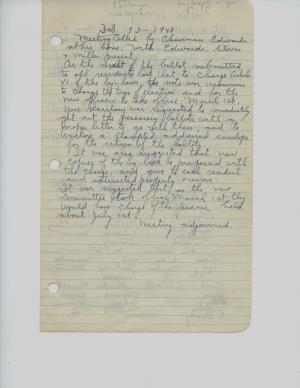 Feb. 13 - 1948
Meeting called by Chairman Edwards
at his home. With Edwards, Stover
& Miller present.
As the result of the ballot submitted
to all residents last Oct. to change Article
VI of the by-laws, the vote was unanimous
to change the type of election and for the
new officers to take office March 1st.
Your secretary was requested to immediately
get out the necessary ballots with a
proper letter to go with them and to
enclose a stamped addressed envelope
for the return of the ballot.
It was also suggested that new
copies of the by-laws be prepared with
the change, and give to each resident
and interested property owner.
It was suggested that as the new
committee took office March 1st they
would have charge of the picnic held
about July 1st.
Meeting adjourned.